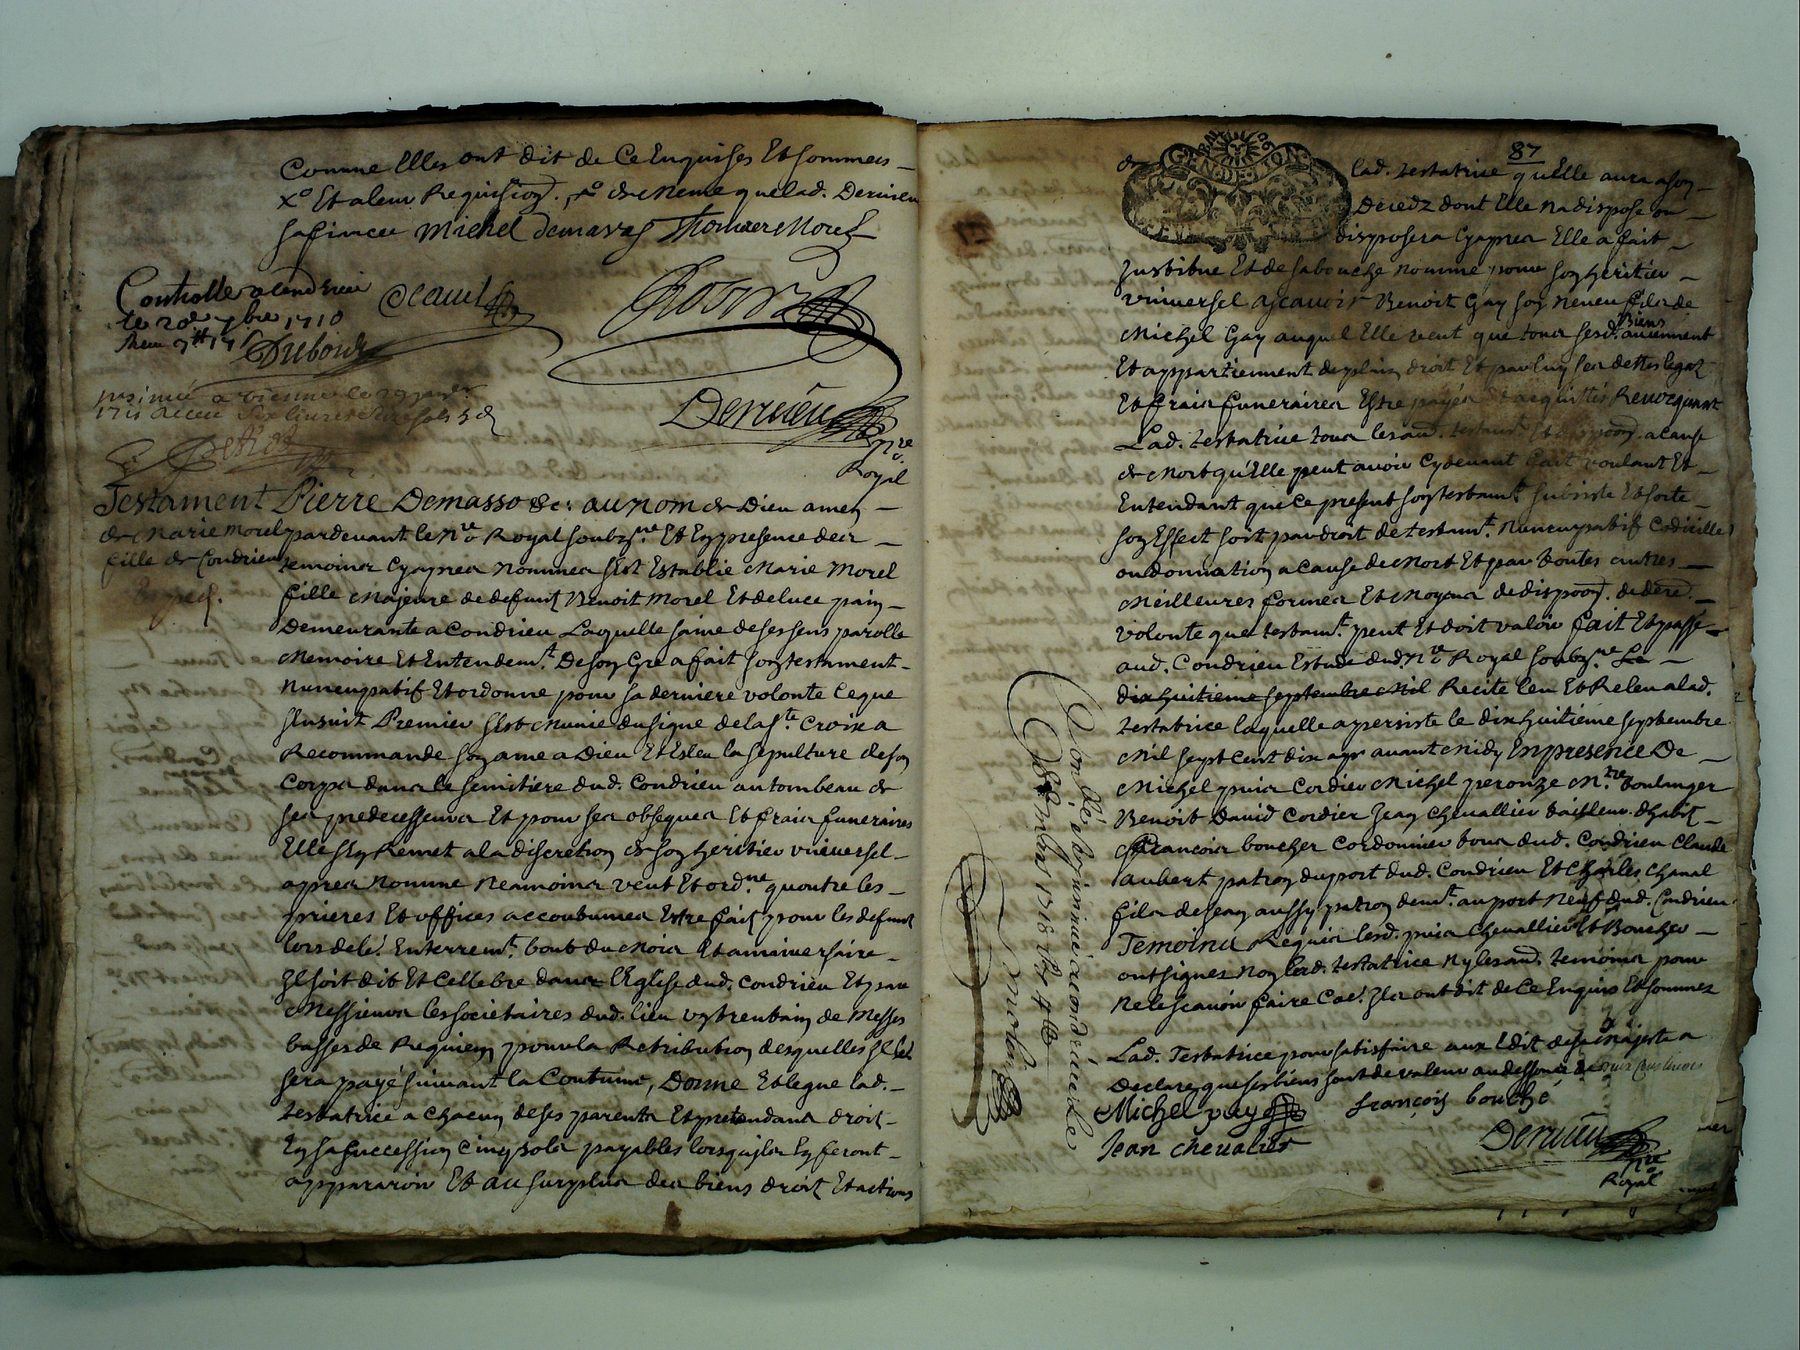 Comme Elles ont dit de Ce Enquises Et sommees
Et a leur Requision. de Meme que lad. Derieu
sa fiancee Michel demaras Thomaer Morel
Controlle a Condrieu
le 20e 7bre 1710
Dubouis
insinué a vienne le
1711
Derieu
nre
Royal
Testament Pierre Demasso &c: au nom de Dieu amen
de Marie Morel pardevant le Nre Royal soubzne Et En presence des
fille de Condrieu temoins Cyapres nommes s'Est Establie Marie Morel
fille Majeure de defunt Benoit Morel Et de luce pain
Demeurante a Condrieu Laquelle saine de ses sens parolle
Memoire Et Entendemt. De son Gre a fait son testament
Nuncupatif Et ordonne pour sa derniere volonte Ce que
s'Ensuit Premier s'Est Munie du signe de la ste Croix a
Recommande son ame a Dieu Et Esleu la sepulture de son
Corps dans le semitiere dud. Condrieu au tombeau de
ses predecesseurs Et pour ses obseques Et frais funeraires
Elle s'En Remet a la discretion de son heritier universel
apres nomme Neamoins veut Et ordne qu'outre les
prieres Et offices accoutumes Estre fait pour les defunt
lors de le. Enterremt. bout du Mois Et anniversaire
Il soit dit Et Cellebre dans l'Eglise dud. Condrieu Et par
Messieurs les societaires dud. lieu de Messes
basses de Requiem pour la Retribution desquelles Il
sera payé suivant la Coutume, Donne Et legue lad.
testatrice a Chacun de ses parents Et pretendants droit
En sa succession Cinq sols payables lorsqu'ils En feront
appararoir Et au surplus des biens droit Et actions
87
de GEN. DE LION
lad. testatrice qu'Elle aura a son
Decedz dont Elle n'a dispose ou
disposera Cyapres Elle a fait
Institue Et de sa bouche nomme pour son heritier
universel ascavoir Benoit Gay son Neveu fils de
Michel Gay auquel Elle veut que tous sesd. Biens aviennent
Et appartiennent de plain droit Et par luy ses dettes legaz
Et frais funeraires Estre payes Et acquittes Revocquant
Lad. testatrice tous lesaud. testamt Et dispoon. a Cause
de Mort qu'Elle peut avoir Cydevant fait voulant Et
Entendant que Ce present son testamt subsiste Et sorte
son Effect soit par droit de testamt. Nuncupatif Codicille
ou donnation a Cause de Mort Et par toutes autres
Meilleures formes Et Moyens de dispoon. de dere.
volonte que testamt. peut Et doit valoir fait Et passe
aud. Condrieu Estude dud. Nre Royal soubzne Le
dixhuitieme septembre Mil Recite leu Et Releu a lad.
testatrice laquelle a persiste le dixhuitieme septembre
Mil sept Cent dix apr avant Midy En presence De
Michel puis Cordier Michel peronze Mtre boulanger
Benoit David Cordier Jean Chevallier tailleur d'habit
francois boucher Cordonnier tous dud. Condrieu Claude
aubert patron du port dud. Condrieu Et Charles Chanal
fils de Jean aussy patron demt. au port Neuf dud. Condrieu
Temoins Requis lesd. puis Chevallier Et Boucher
ont signes non lad. testatrice ny lesaud. temoins pour
ne le scavoir faire Co'e. Ils ont dit de Ce Enquis Et sommez
Lad. Testatrice pour satisfaire aux Edit de sa Majeste a
Declare que ses biens sont de valeur au dessous de
Michel puy
francois bouché
Jean chevalier
Derieu
nre
Royal
Conllé et insinué a condrieu le